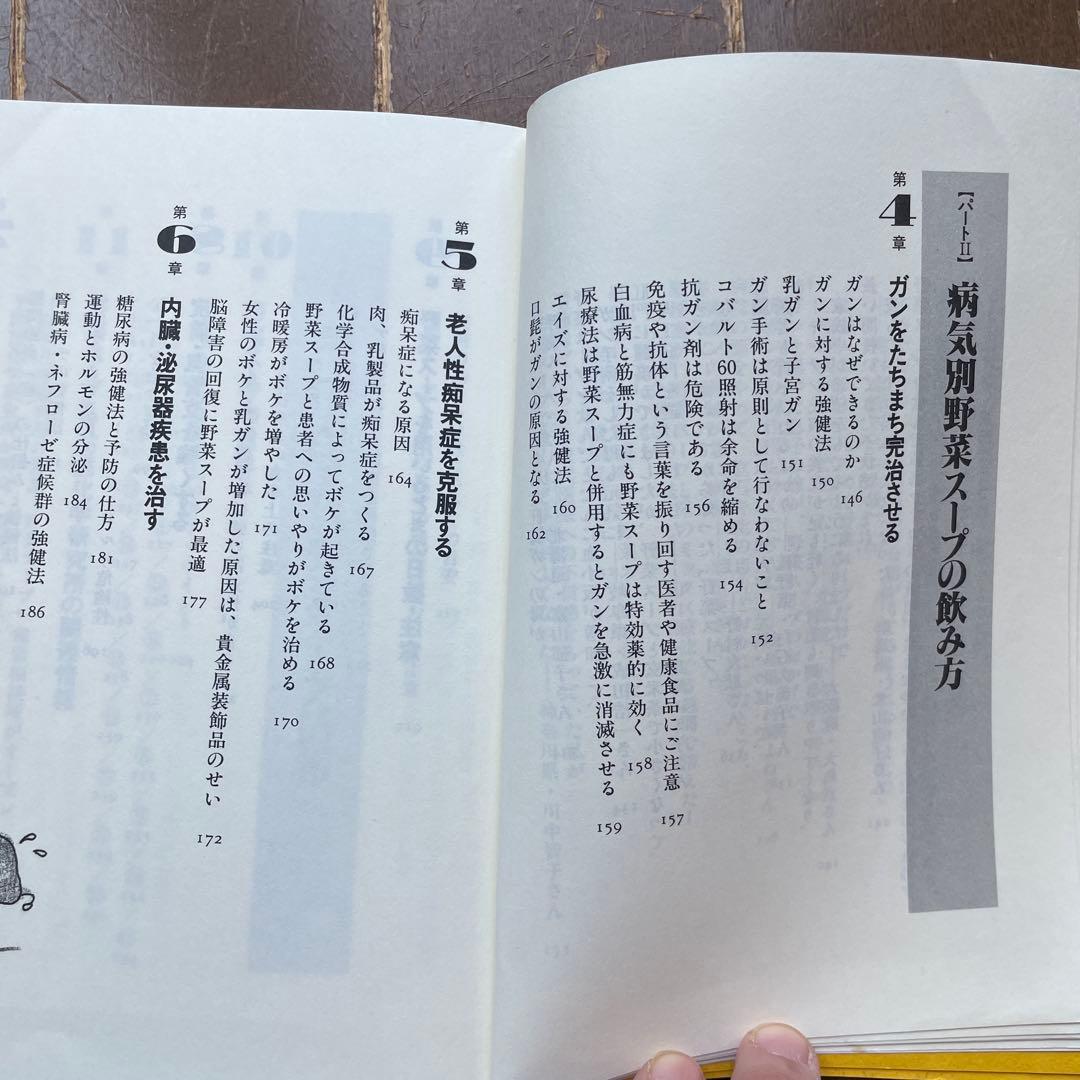 【パートⅡ】 病気別野菜スープの飲み方
第4章 ガンをたちまち完治させる
ガンはなぜできるのか 146
ガンに対する強健法 150
乳ガンと子宮ガン 151
ガン手術は原則として行なわないこと 152
コバルト60照射は余命を縮める 154
抗ガン剤は危険である 156
免疫や抗体という言葉を振り回す医者や健康食品にご注意 157
白血病と筋無力症にも野菜スープは特効薬的に効く 158
尿療法は野菜スープと併用するとガンを急激に消滅させる 159
エイズに対する強健法 160
口髭がガンの原因となる 162
第5章 老人性痴呆症を克服する
痴呆症になる原因 164
肉、乳製品が痴呆症をつくる 167
化学合成物質によってボケが起きている 168
野菜スープと患者への思いやりがボケを治める 170
冷暖房がボケを増やした 171
女性のボケと乳ガンが増加した原因は、貴金属装飾品のせい 172
脳障害の回復に野菜スープが最適 177
第6章 内臓・泌尿器疾患を治す
糖尿病の強健法と予防の仕方 181
運動とホルモンの分泌 184
腎臓病・ネフローゼ症候群の強健法 186